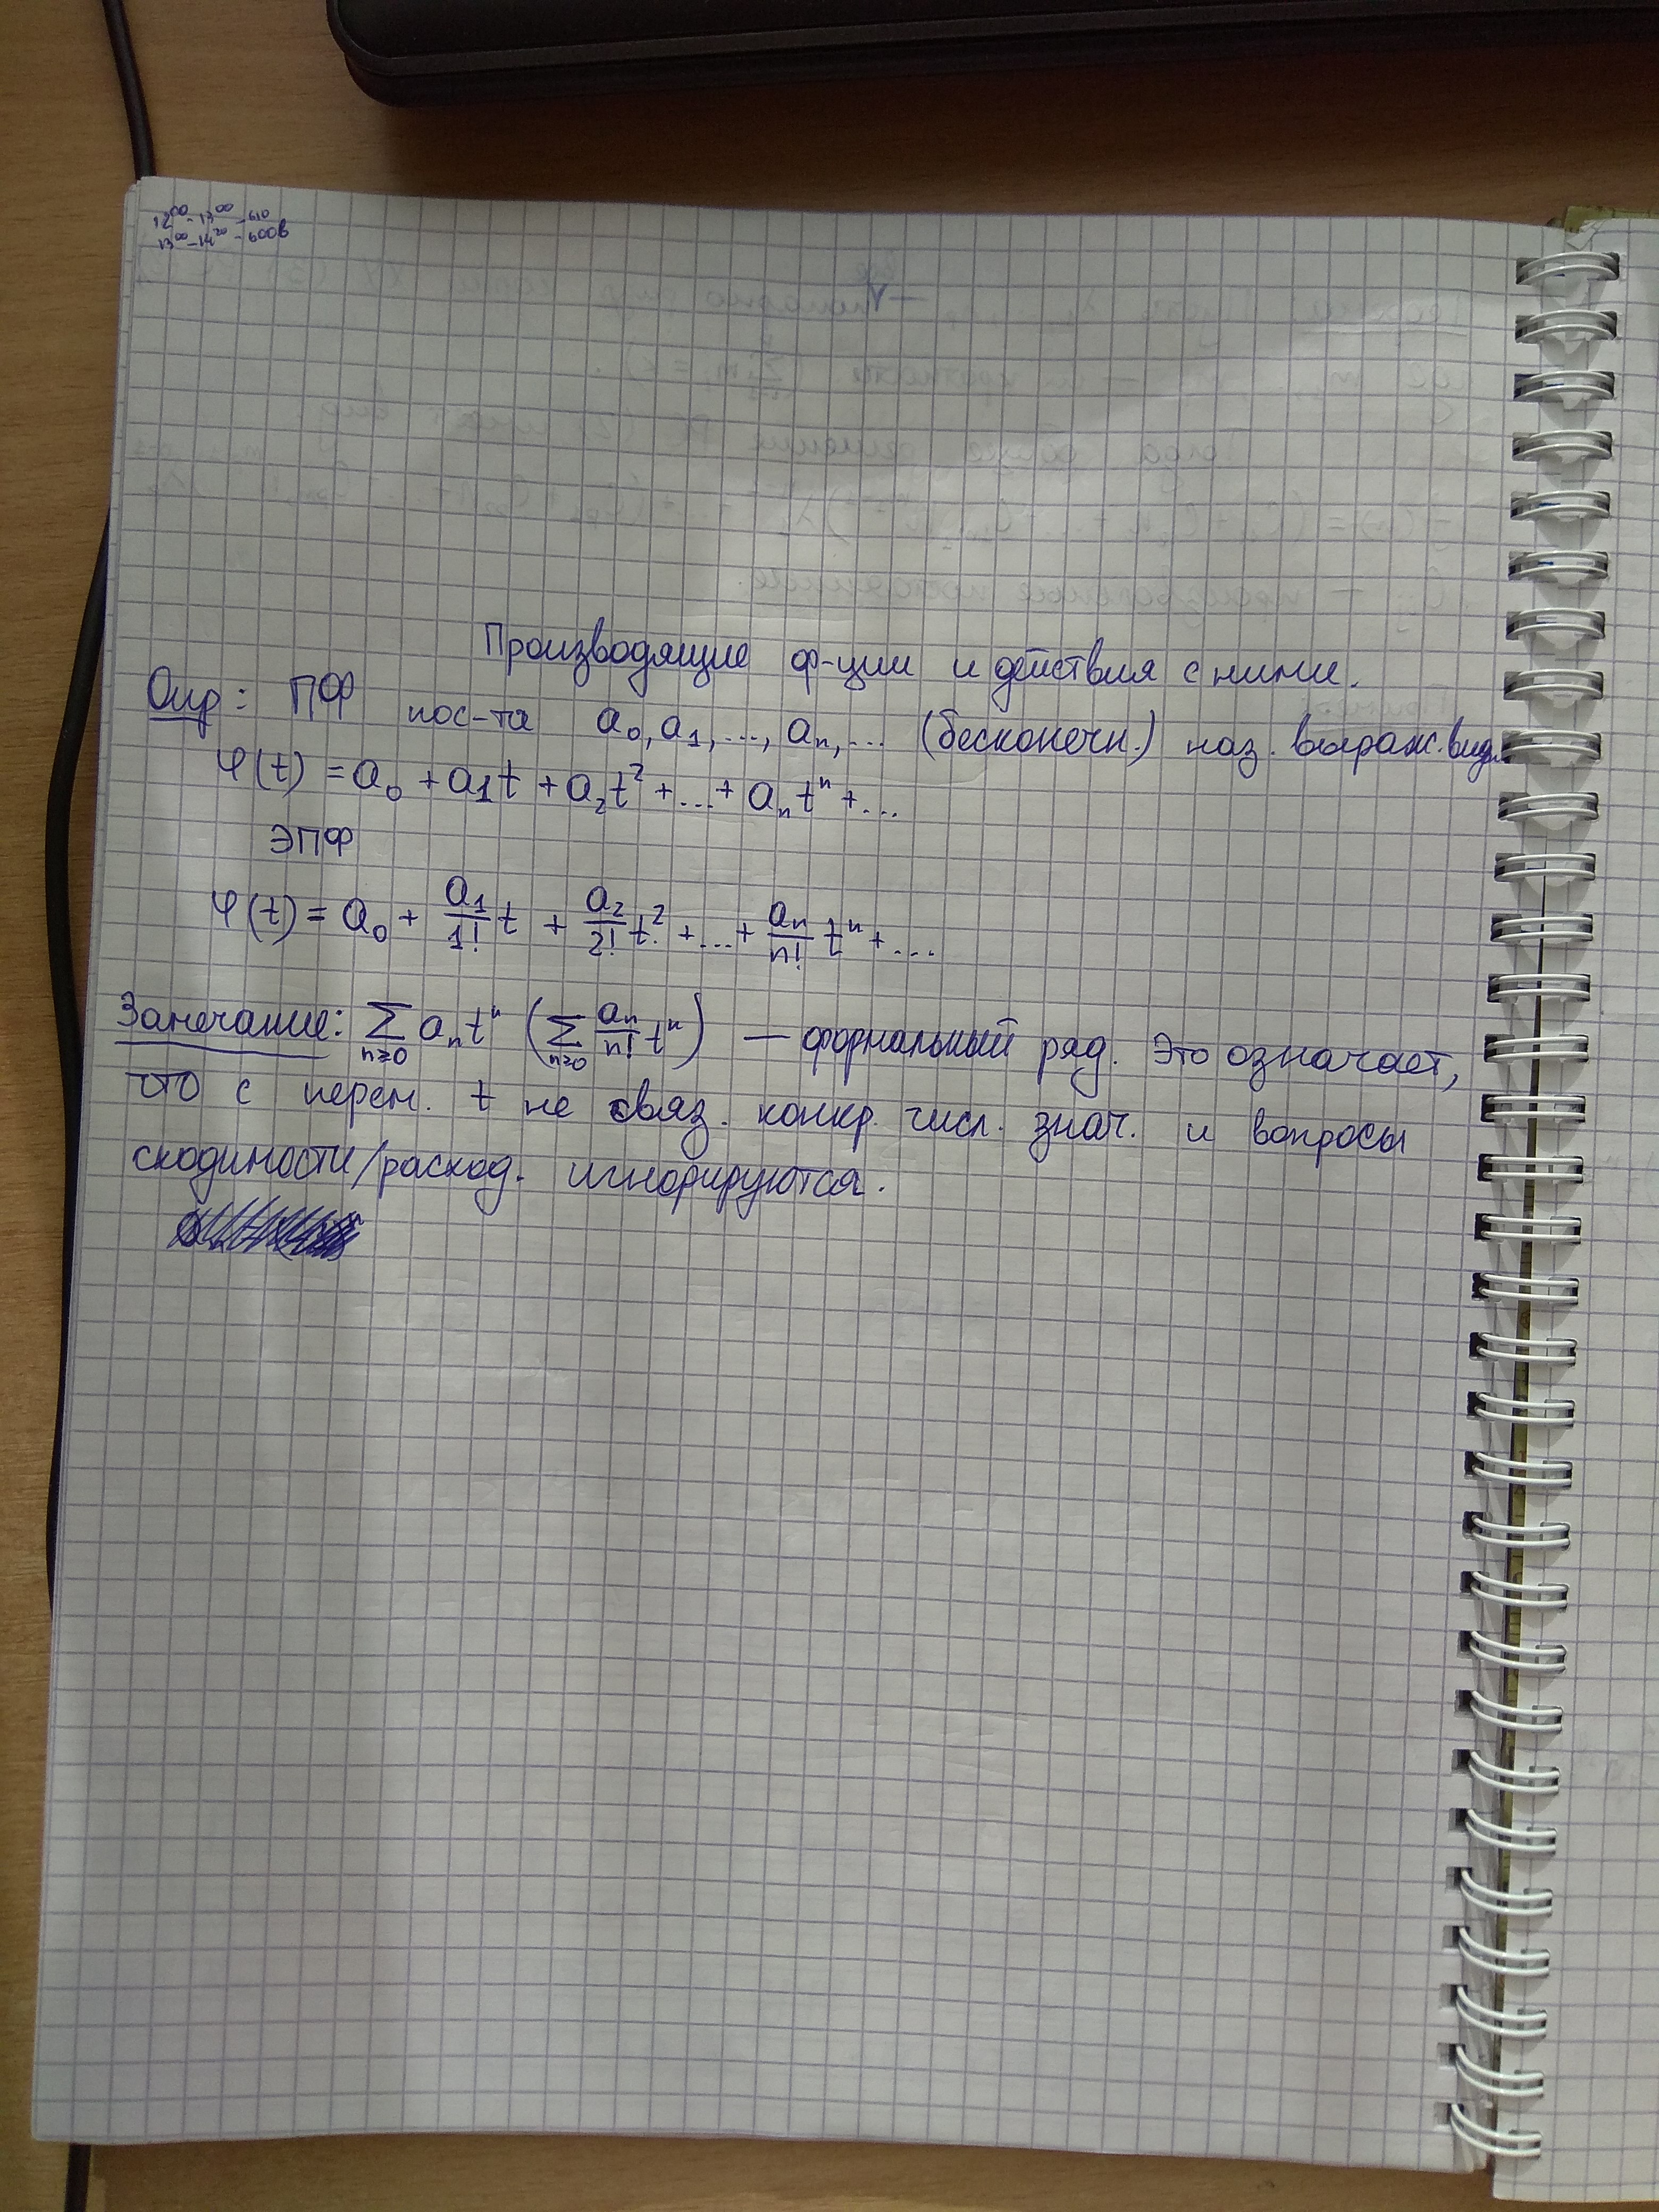 12⁰⁰-13⁰⁰-610
13⁰⁰-14²⁰-600в
Производящие ф-ции и действия с ними.
Опр: ПФ пос-та a₀, a₁, ..., aₙ, ... (бесконечн.) наз. выраж. вида
φ(t) = a₀ + a₁t + a₂t² + ... + aₙtⁿ + ...
ЭПФ
φ(t) = a₀ + a₁/1! t + a₂/2! t² + ... + aₙ/n! tⁿ + ...
Замечание: ∑ n≥0 aₙtⁿ (∑ n≥0 aₙ/n! tⁿ) — формальный ряд. Это означает,
что с перем. t не связ. конкр. числ. знач. и вопросы
сходимости/расход. игнорируются.